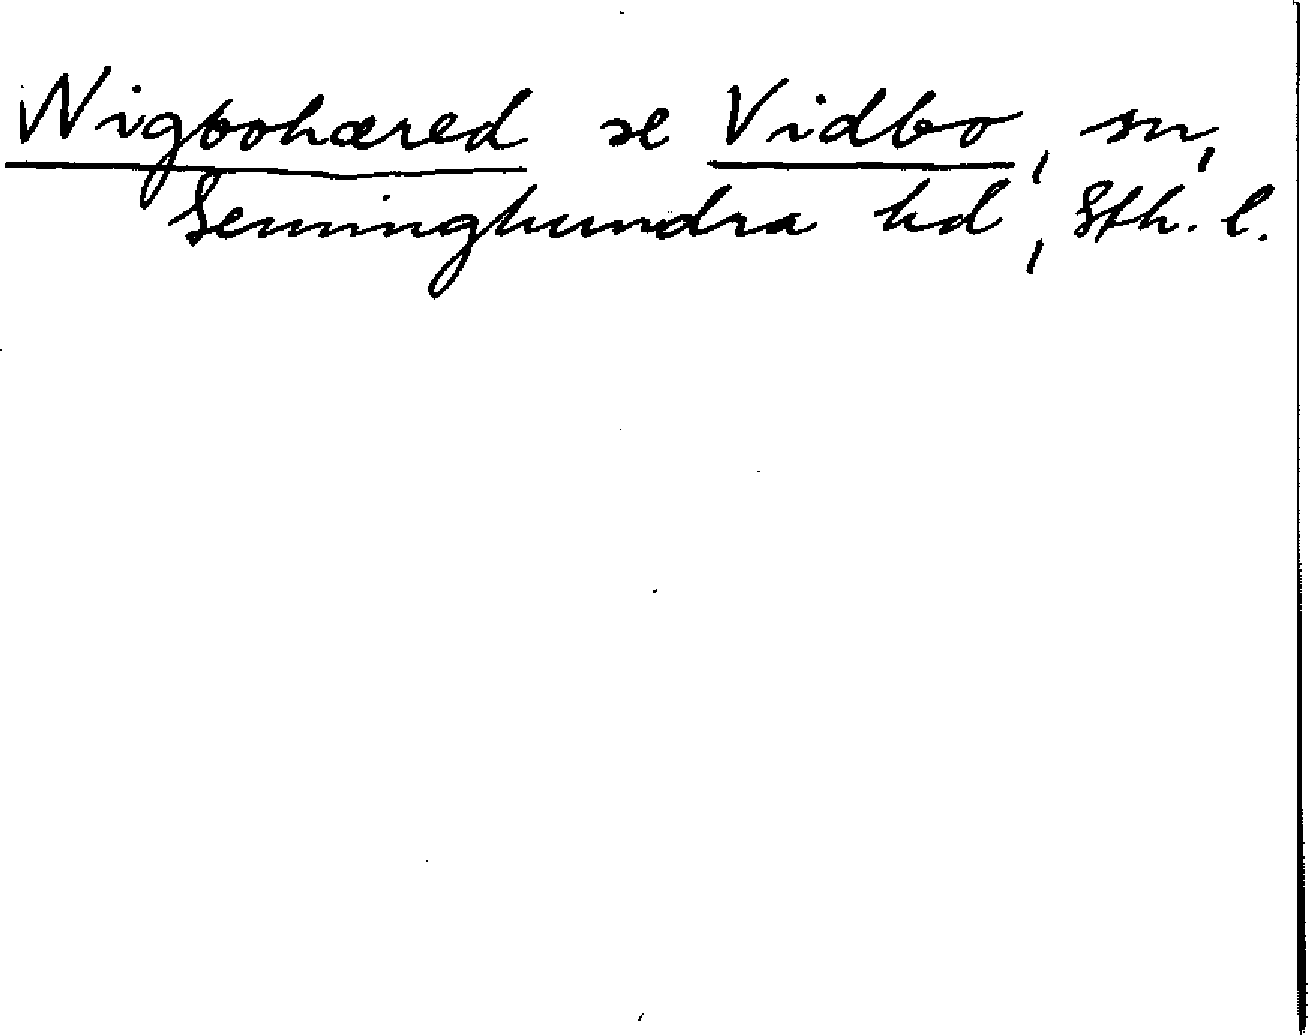 Wigbohæred se Vidbo, sn,
Seminghundra hd, Sth. l.